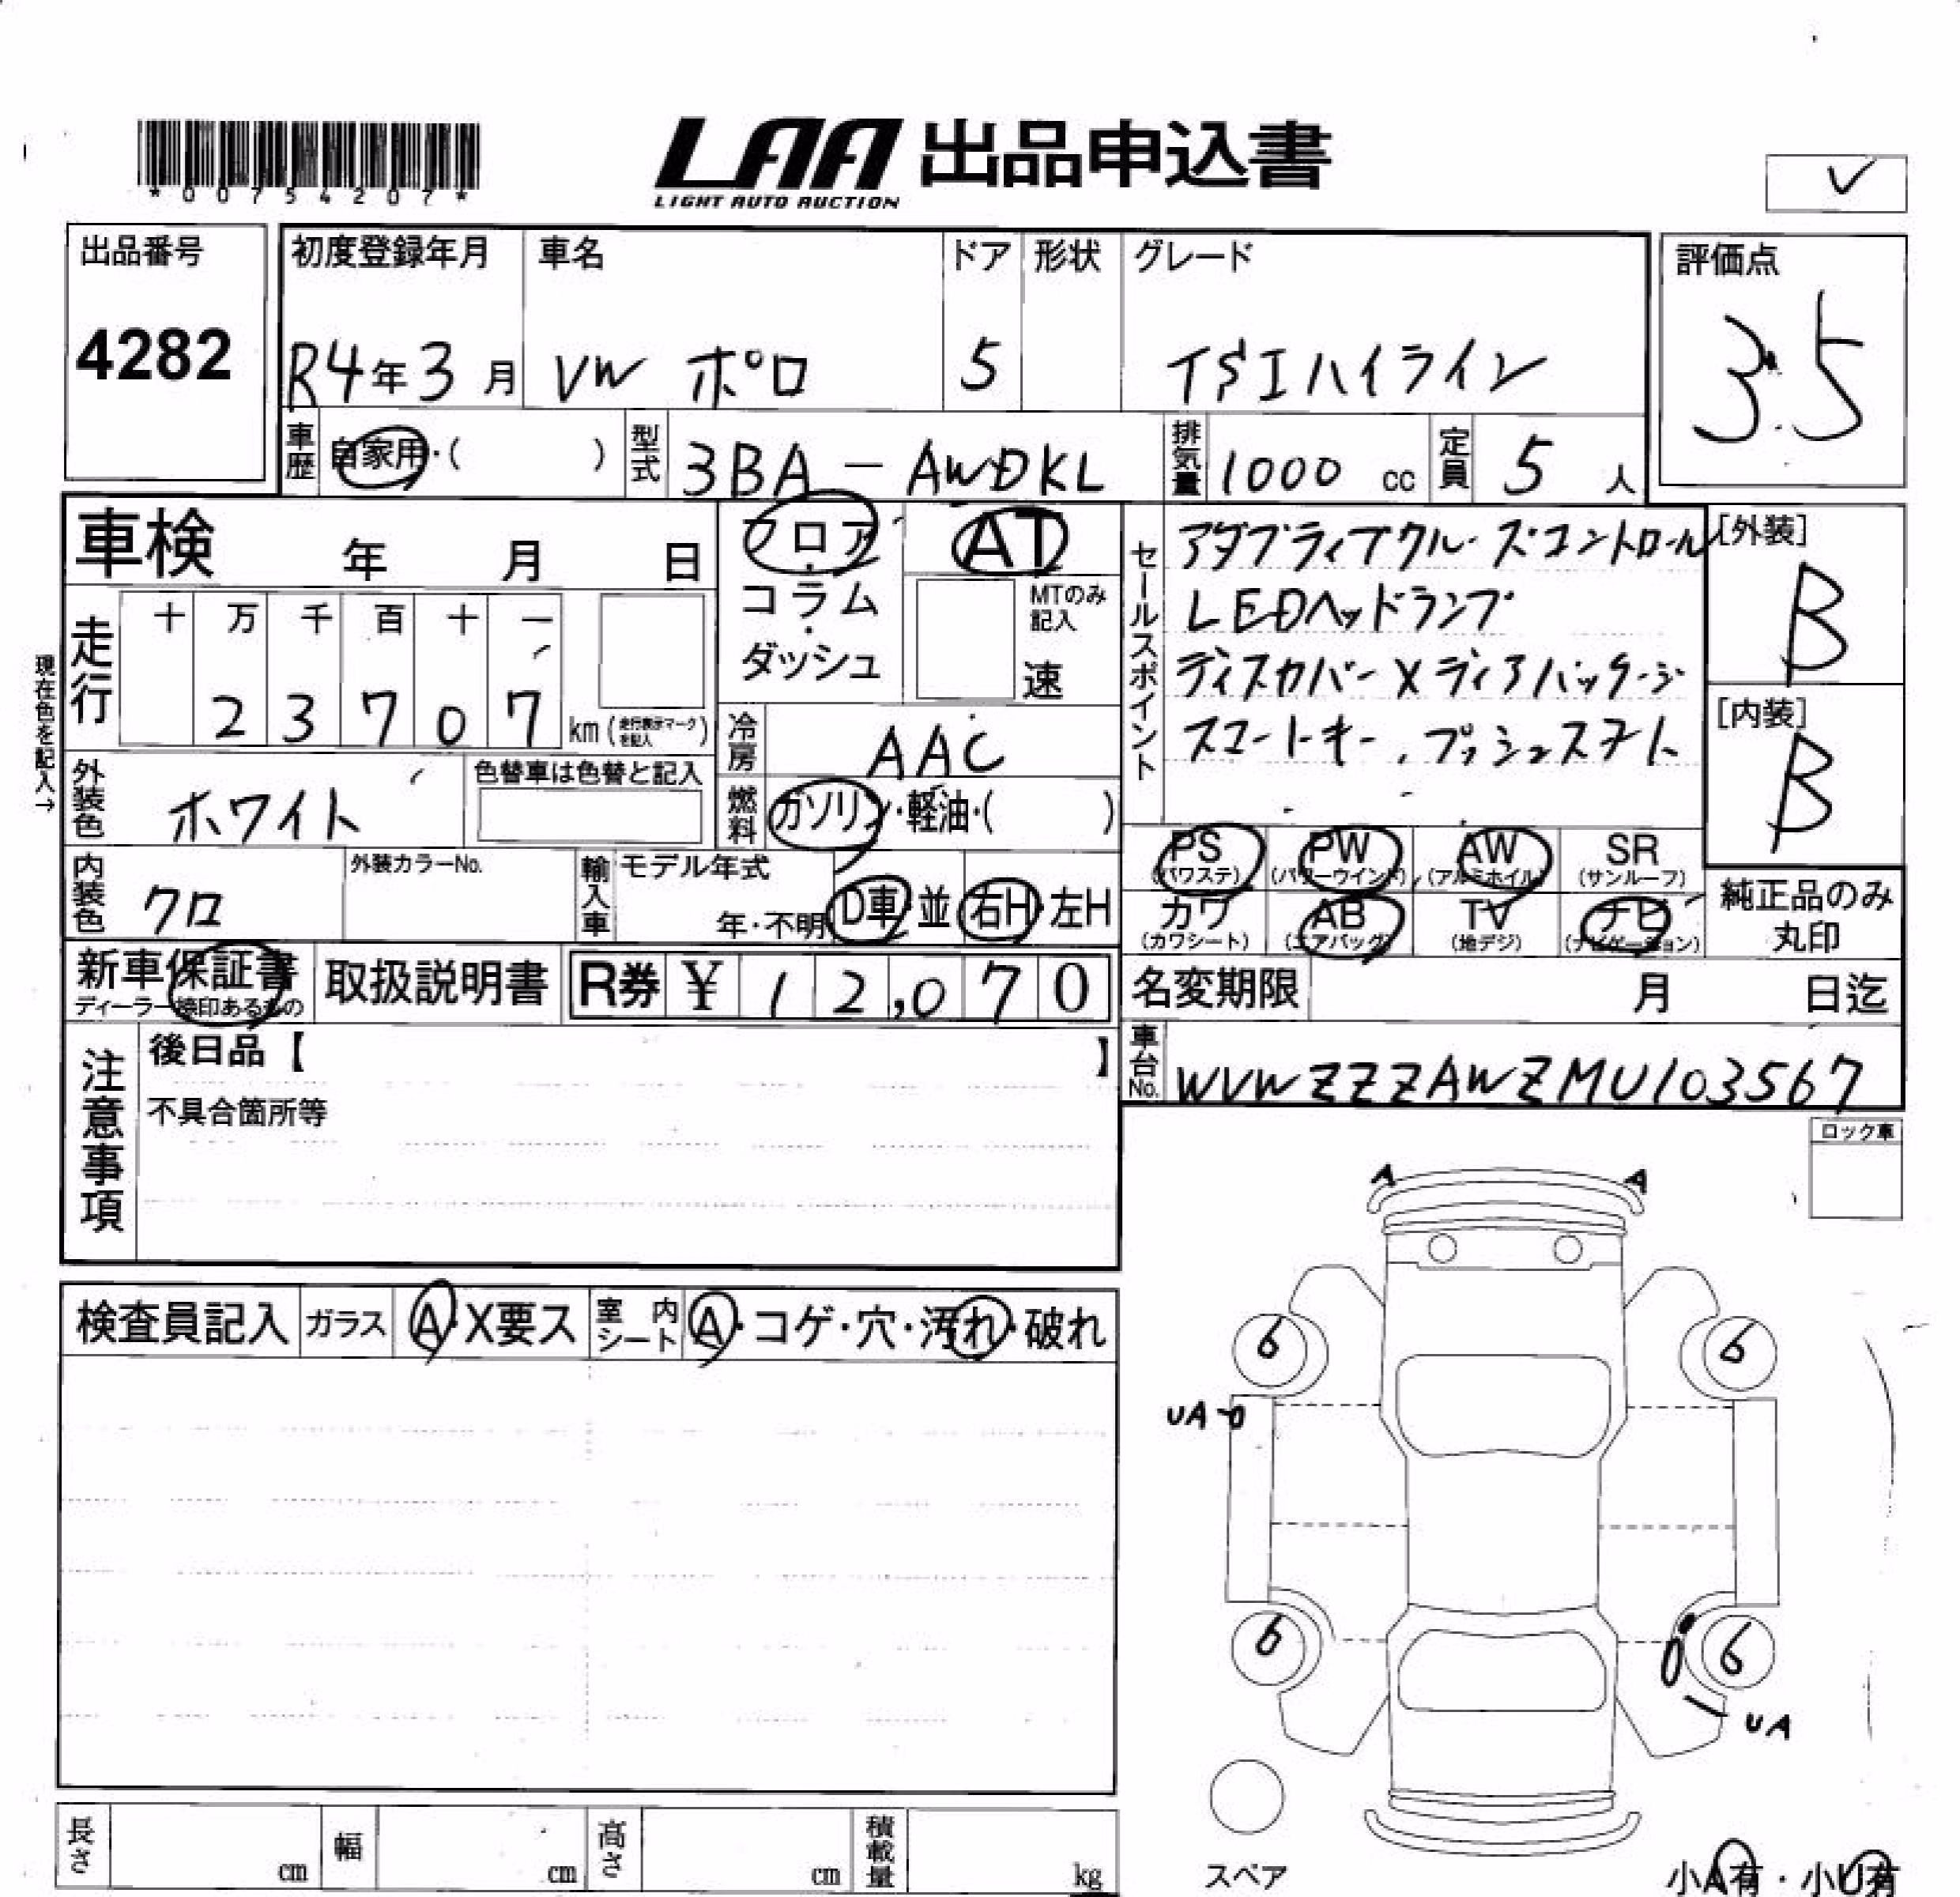 *00754207*
LAA 出品申込書
LIGHT AUTO AUCTION
出品番号
4282
初度登録年月
R4年3月
車名
VW ポロ
ドア
5
形状
グレード
TSIハイライン
評価点
3.5
車歴
自家用・( )
型式
3BA-AWDKL
排気量
1000 cc
定員
5人
車検 年 月 日
フロア・コラム・ダッシュ
AT
MTのみ記入
速
走行
十 万 千 百 十 一
2 3 7 0 7
km(走行表示マークを記入)
現在色を記入→
外装色
ホワイト
色替車は色替と記入
冷房
AAC
燃料
ガソリン・軽油・( )
内装色
クロ
外装カラーNo.
輸入車
モデル年式
年・不明
D車 並
右H・左H
セールスポイント
アダプティブクルーズコントロール
LEDヘッドランプ
ディスカバーメディアパッケージ
スマートキー、プッシュスタート
[外装]
B
[内装]
B
PS (パワステ)
PW (パワーウインド)
AW (アルミホイル)
SR (サンルーフ)
カワ (カワシート)
AB (エアバッグ)
TV (地デジ)
ナビ (ナビゲーション)
純正品のみ
丸印
新車保証書
ディーラー捺印あるもの
取扱説明書
R券 ¥ 12,070
名変期限 月 日迄
車台No.
WVWZZZAWZMU103567
注意事項
後日品【 】
不具合箇所等
ロック車
A A
検査員記入
ガラス
A・X要ス
室内シート
A・コゲ・穴・汚れ・破れ
6 6
UA
6 6
UA
スペア
長さ cm
幅 cm
高さ cm
積載量 kg
小A有・小U有